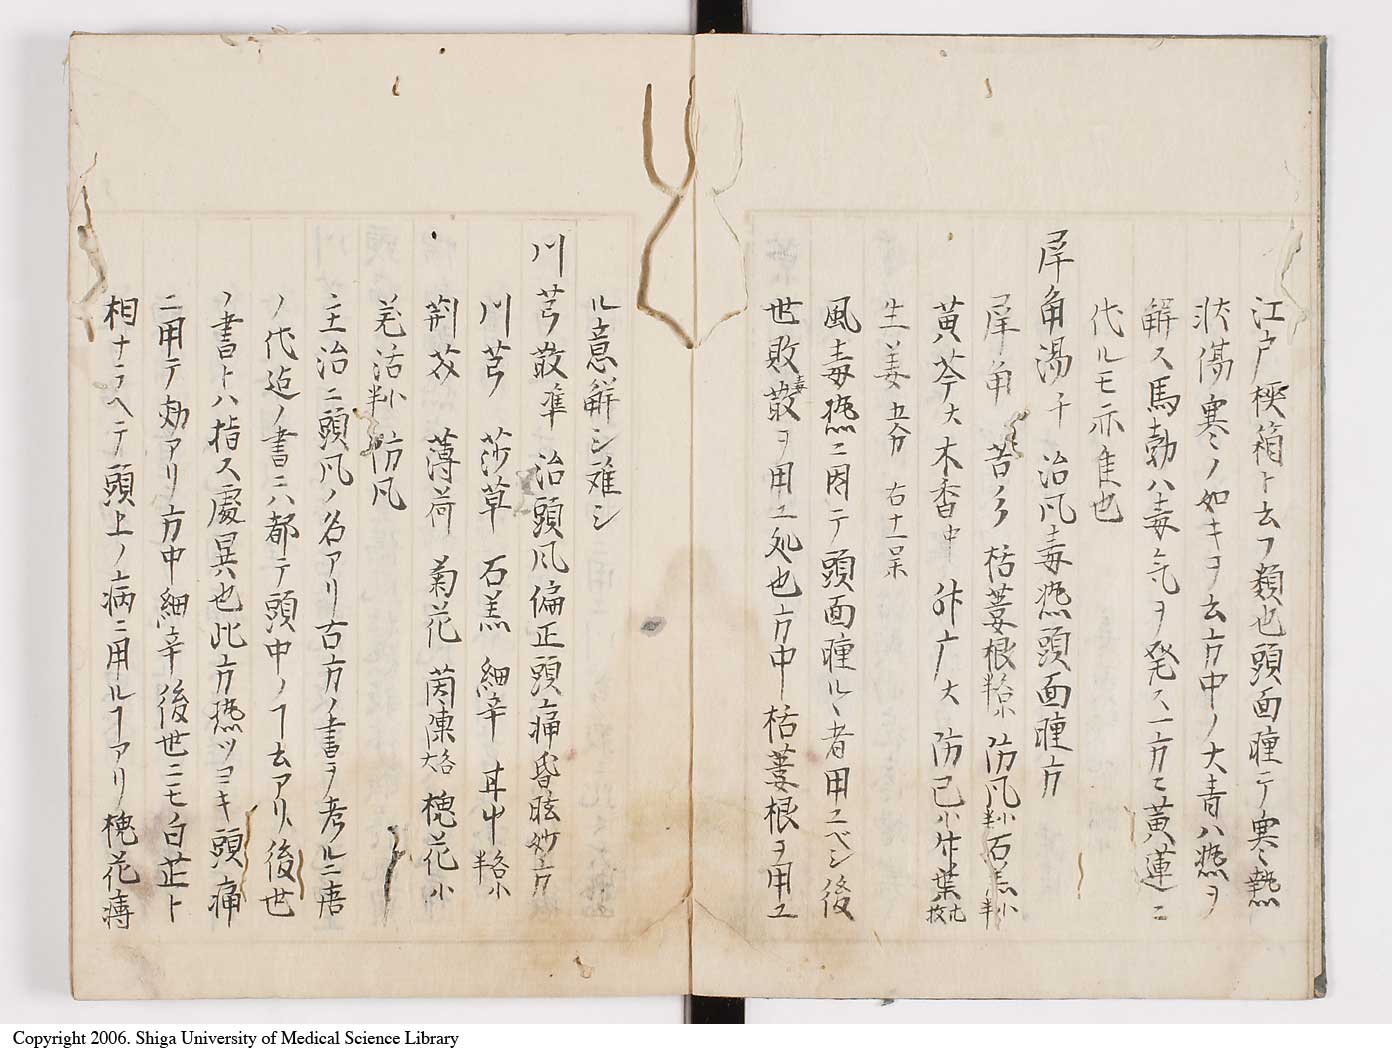 江戸挾箱ト云フ類也頭面腫テ寒〻熱
状傷寒ノ如キヲ云方中ノ大青ハ𤍠ヲ
解ス馬勃ハ毒気ヲ発ス一方ニ黄連ニ
代ルモ亦佳也
犀角湯千 治凤毒𤍠頭面腫方
犀角 苦多 栝蔞根 防凤半小石羔半小
黄芩大木香中 升广大 防己小竹葉九枚
生姜五分 右十一味
風毒𤍠ニ因テ頭面腫ルヽ者用ユベシ後
世敗毒散ヲ用ユ処也方中栝蔞根ヲ用ユ
ル意解シ難シ
川芎散準 治頭凤偏正頭痛昏眩妙方
川芎 莎草 石羔 細辛 甘中各小半
荊芥 薄荷 菊花 茵蔯各大 槐花小
羌活小半 防凤
主治ニ頭凤ノ名アリ古方ノ書ヲ考ルニ唐
ノ代迠ノ書ニハ都テ頭中ノヿ云アリ後世
ノ書トハ指ス處異也此方𤍠ツヨキ頭痛
ニ用テ効アリ方中細辛後世ニモ白芷ト
相ナラヘテ頭上ノ病ニ用ルヿアリ槐花痔
Copyright 2006. Shiga University of Medical Science Library